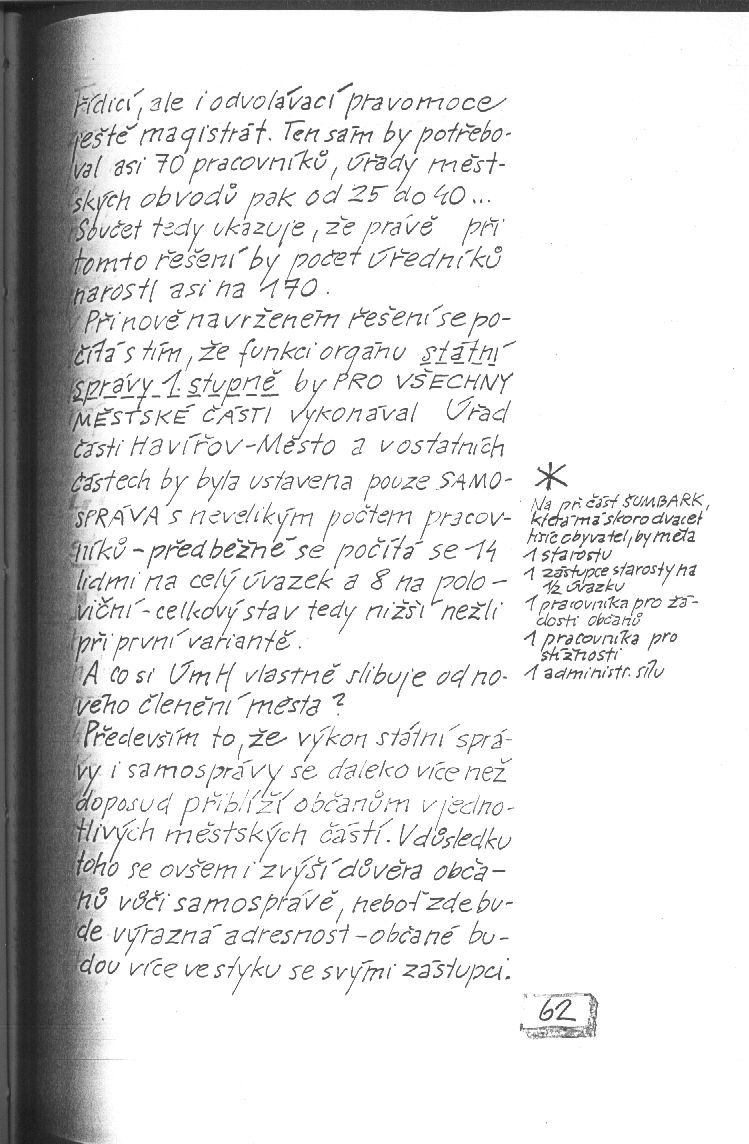 řídicí, ale i odvolávací pravomoce
ještě magistrát. Ten sám by potřebo-
val asi 70 pracovníků, úřady měst-
ských obvodů pak od 25 do 40...
Součet tedy ukazuje, že právě při
tomto řešení by počet úředníků
narostl asi na 170.
Při nově navrženém řešení se po-
čítá s tím, že funkci orgánu státní
správy 1. stupně by PRO VŠECHNY
MĚSTSKÉ ČÁSTI vykonával Úřad
části Havířov-Město a v ostatních
částech by byla ustavena pouze SAMO-
SPRÁVA s nevelikým počtem pracov-
níků - předběžně se počítá se 14
lidmi na celý úvazek a 8 na polo-
viční - celkový stav tedy nižší nežli
při první variantě.
A co si ÚmH vlastně slibuje od no-
vého členění města?
Především to, že výkon státní sprá-
vy i samosprávy se daleko více než
doposud přiblíží občanům v jedno-
tlivých městských částí. V důsledku
toho se ovšem i zvýší důvěra obča-
nů vůči samosprávě, neboť zde bu-
de výrazná adresnost - občané bu-
dou více ve styku se svými zástupci.
*
Na př. část ŠUMBARK,
která má skoro dvacet
tisíc obyvatel, by měla
1 starostu
1 zástupce starosty na
1/2 úvazku
1 pracovníka pro žá-
dosti občanů
1 pracovníka pro
stížnosti
1 administr. sílu
62